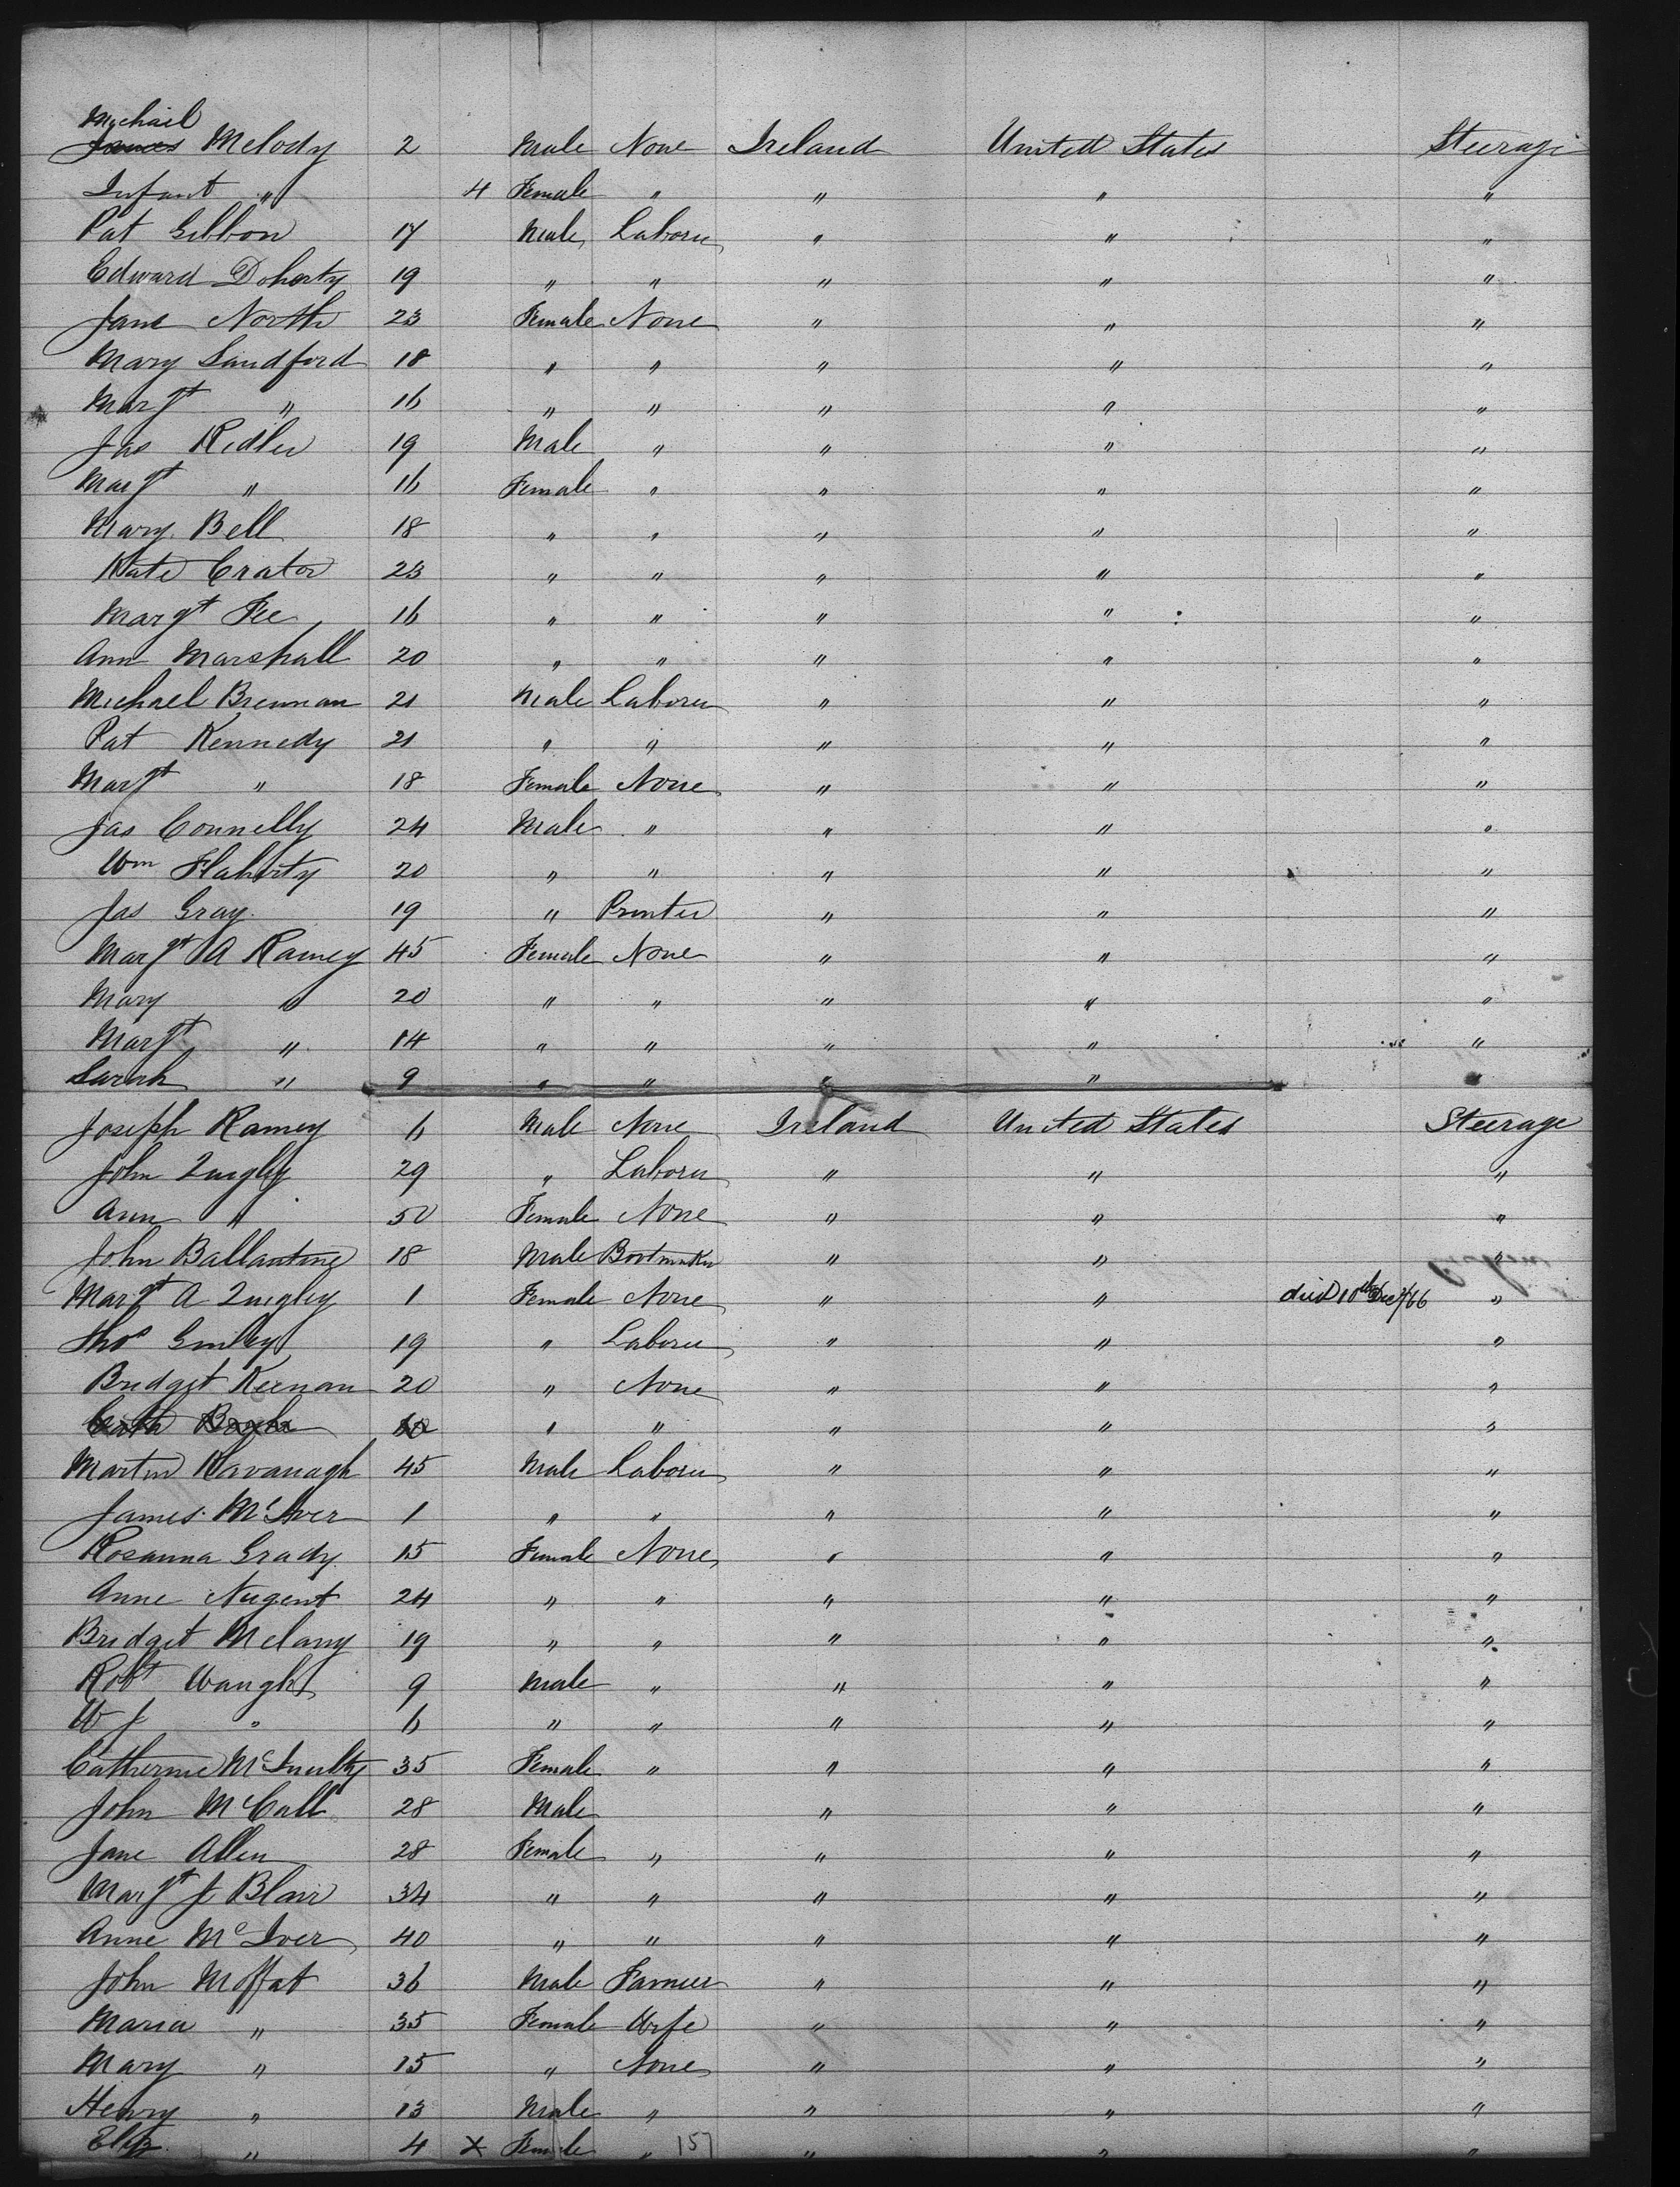 Michail
James Melody 2 Male None Ireland United States Steerage
Infant " 4 Female " " " "
Pat Gibbon 17 Male Laborer " " "
Edward Doherty 19 " " " " "
Jane North 23 Female None " " "
Mary Sandford 18 " " " " "
Margt " 16 " " " " "
Jas Kidler 19 Male " " " "
Margt " 16 Female " " " "
Mary Bell 18 " " " " "
Kate Crator 23 " " " " "
Margt Fee 16 " " " " "
Ann Marshall 20 " " " " "
Michael Brennan 21 Male Laborer " " "
Pat Kennedy 21 " " " " "
Margt " 18 Female None " " "
Jas Connelly 24 Male " " " "
Wm Flaherty 20 " " " " "
Jas Gray 19 " Printer " " "
Margt A Ramey 45 Female None " " "
Mary " 20 " " " " "
Margt " 14 " " " " "
Sarah " 9 " " " " "
Joseph Ramey 6 Male None Ireland United States Steerage
John Quigley 29 " Laborer " " "
Ann " 50 Female None " " "
John Ballantine 18 Male Bootmaker " " "
Margt A Quigley 1 Female None " " died 10th Dec/66 "
Thos 19 " Laborer " " "
Bridget Keenan 20 " None " " "
" " " " "
Martin Kavanagh 45 Male Laborer " " "
James McIver 1 " " " " "
Rosanna Grady 15 Female None " " "
Anne Nugent 24 " " " " "
Bridget Melany 19 " " " " "
Robt Waugh 9 Male " " " "
W J " 6 " " " " "
Catherine 35 Female " " " "
John McCall 28 Male " " "
Jane Allen 28 Female " " " "
Margt J Blair 34 " " " " "
Anne McIver 40 " " " " "
John Moffat 36 Male Farmer " " "
Maria " 35 Female Wife " " "
Mary " 15 " None " " "
Henry " 13 Male " " " "
Eliz " 4 X Female " 157 " " "